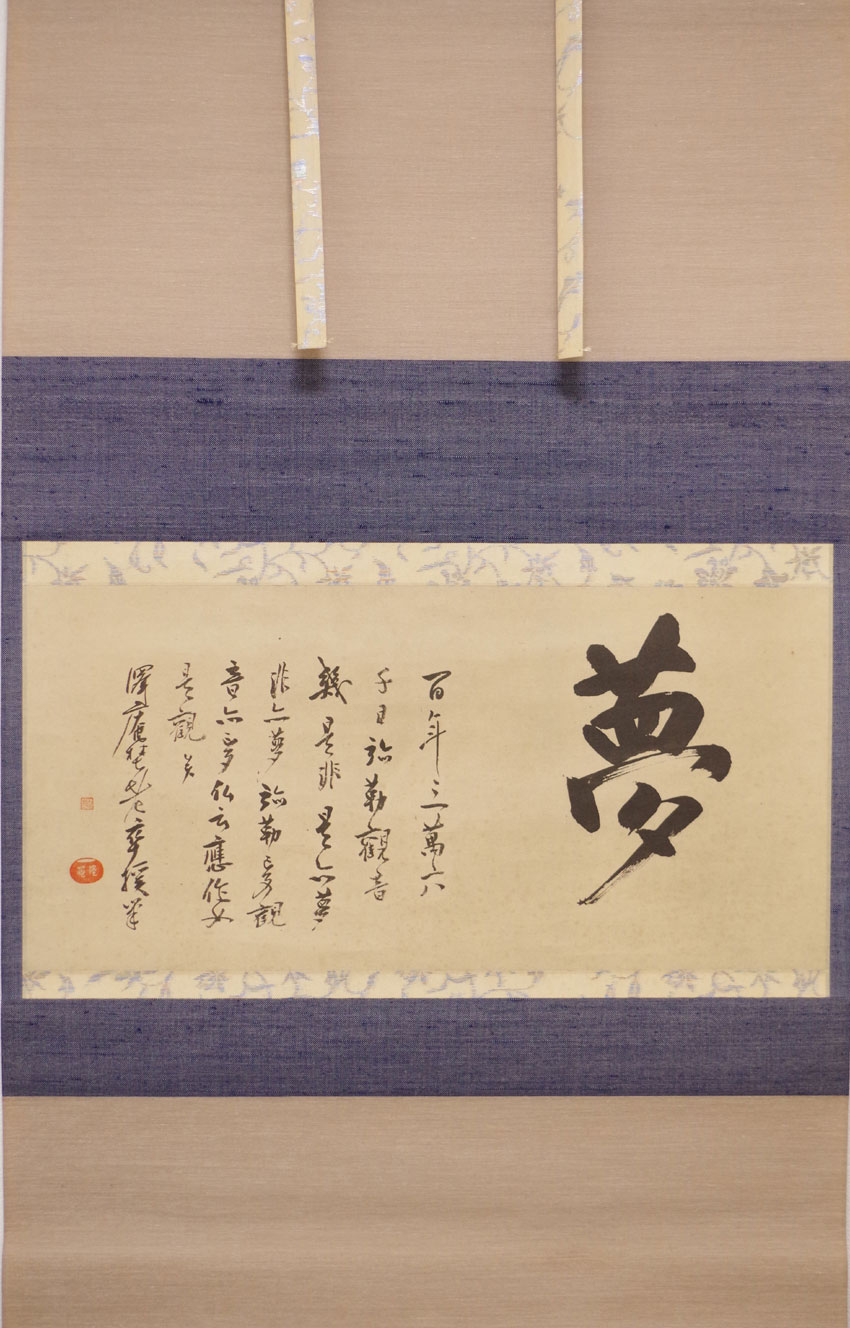 夢
百年三萬六
千日弥勒観音
幾是非是亦夢
非亦夢弥勒夢観
音亦夢仏云應作如
是観矣
澤庵野老卒援筆